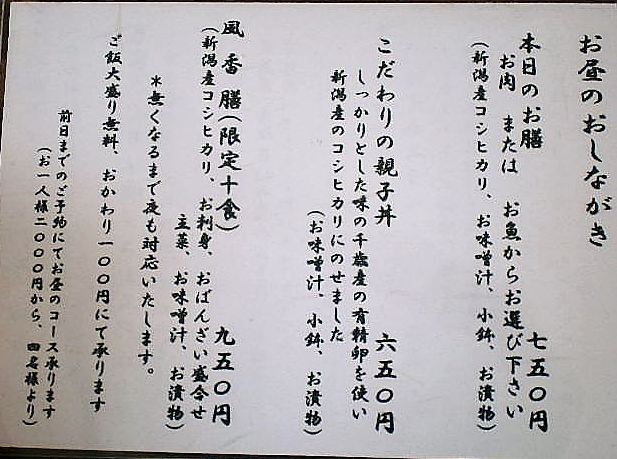 お昼のおしながき
本日のお膳 七五〇円
お肉 または お魚からお選び下さい
(新潟産コシヒカリ、お味噌汁、小鉢、お漬物)
こだわりの親子丼 六五〇円
しっかりとした味の千歳産の有精卵を使い
新潟産のコシヒカリにのせました
(お味噌汁、小鉢、お漬物)
風香膳(限定十食) 九五〇円
(新潟産コシヒカリ、お刺身、おばんざい盛合せ
主菜、お味噌汁、お漬物)
*無くなるまで夜も対応いたします。
ご飯大盛り無料、おかわり一〇〇円にて承ります
前日までのご予約にてお昼のコース承ります
(お一人様二〇〇〇円から、四名様より)